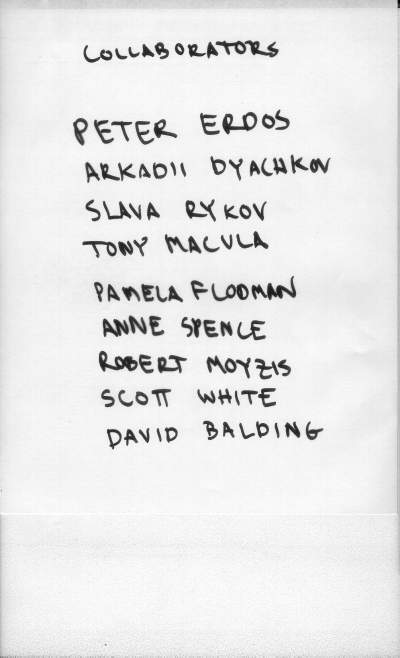 COLLABORATORS
PETER ERDOS
ARKADII DYACHKOV
SLAVA RYKOV
TONY MACULA
PAMELA FLODMAN
ANNE SPENCE
ROBERT MOYZIS
SCOTT WHITE
DAVID BALDING